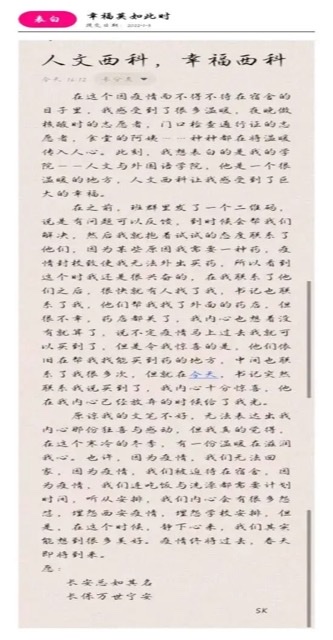 表白
幸福莫如此时
提交日期：2022-1-5
人文西科，幸福西科
今天 14:12 未分类
在这个因疫情而不得不待在宿舍的
日子里，我感受到了很多温暖，夜晚做
核酸时的志愿者，门口检查通行证的志
愿者，食堂的阿姨……种种都在将温暖
传入人心。此刻，我想表白的是我的学
院——人文与外国语学院，他是一个很
温暖的地方，人文西科让我感受到了巨
大的幸福。
在之前，班群里发了一个二维码，
说是有问题可以反馈，到时候会帮我们
解决，然后我就抱着试试的态度联系了
他们，因为某些原因我需要一种药，疫
情封校致使我无法外出买药，所以看到
这个时我还是很兴奋的，在我联系了他
们之后，很快就有人找了我，书记也联
系了我，他们帮我找了外面的药店，但
很不幸，药店都关了，我内心也想着没
有就算了，说不定疫情马上过去我就可
以买到了，但是令我惊喜的是，他们依
旧在帮我找能买到药的地方，中间也联
系了我很多次，但就在今天，书记突然
联系我说买到了，我内心十分惊喜，他
在我内心已经放弃的时候给了我光。
原谅我的文笔不好，无法表达出我
内心那份狂喜与感动，但我真的觉得，
在这个寒冷的冬季，有一份温暖在滋润
我心。也许，因为疫情，我们无法回
家，因为疫情，我们被迫待在宿舍，因
为疫情，我们连吃饭与洗漱都需要计划
时间，听从安排，我们内心会有很多怨
怼，埋怨西安疫情，埋怨学校安排，但
是，在这个时候，静下心来，我们其实
能想到很多美好。疫情终将过去，春天
即将到来。
愿：
长安总如其名
长保万世宁安
SK